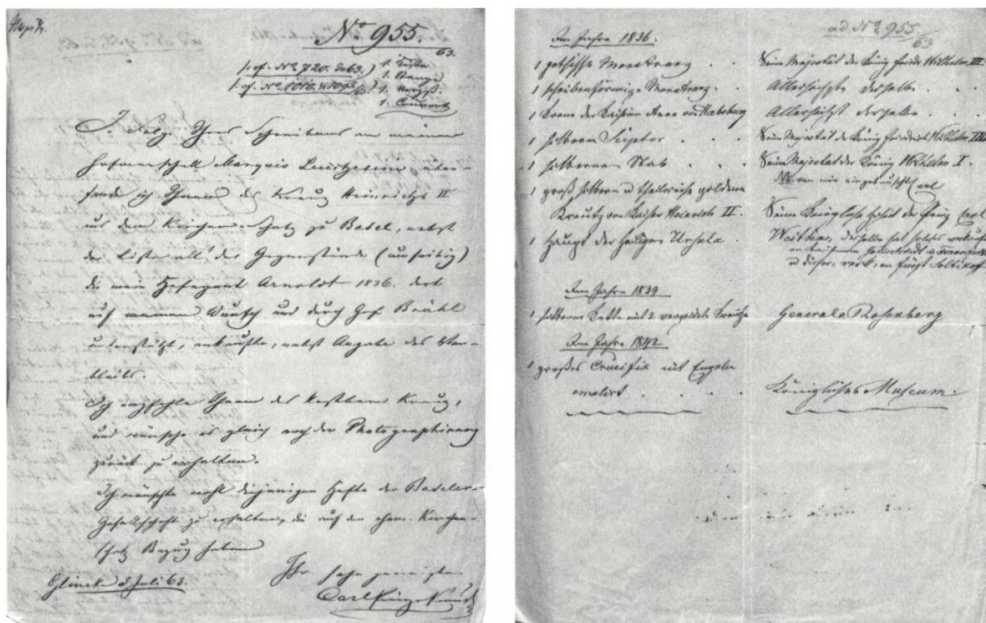 No 955.
63.
1. cf. No 720. de 63.) 1. Liste
1. cf. No 1010.
1. Couvert
In Folge Ihres Schreibens an meinen
Hofmarschall Marquis Lucchesini über-
sende ich Ihnen das Kreuz Heinrichs II
aus dem Kirchen-Schatz zu Basel, nebst
der Liste all' der Gegenstände (umseitig)
die mein Hofagent Arnoldt 1836. dort
auf meinen Wunsch und durch Graf Brühl
unterstützt, ankaufte, nebst Angabe des Ver-
bleibs.
Ich empfehle Ihnen das kostbare Kreuz,
und wünsche es gleich nach der Photographirung
zurück zu erhalten.
Ich wünschte wohl diejenigen Hefte der Baseler-
Gesellschaft zu erhalten, die auf den ehem. Kirchen-
schatz Bezug haben
Ihr sehr geneigter
Glinicke 2 Juli 63.
Carl Prinz
ad No 955.
63
Im Jahre 1836.
1 gothische Monstranz. Seine Majestät der König Friedr. Wilhelm III.
1 scheibenförmige Monstranz. Allerhöchst derselbe.
1 Krone der Kaiserin Anna von Habsburg Allerhöchst derselbe.
1 silbern Scepter Seine Majestät der König Friedrich Wilhelm III
1 silberner Stab Seine Majestät der König Wilhelm I.
von mir eingetauscht
1 groß silbern u theilweise goldnes
Kreutz von Kaiser Heinrich II. Seine Königliche Hoheit der Prinz Carl
1 Haupt der heiligen Ursula derselbe hat solches verkauft
Im Jahre 1839
1 silberne Kette mit 2 General v Rosenberg
Im Jahre 1842
1 großes Crucifix mit Engeln
emalirt Königliches Museum.